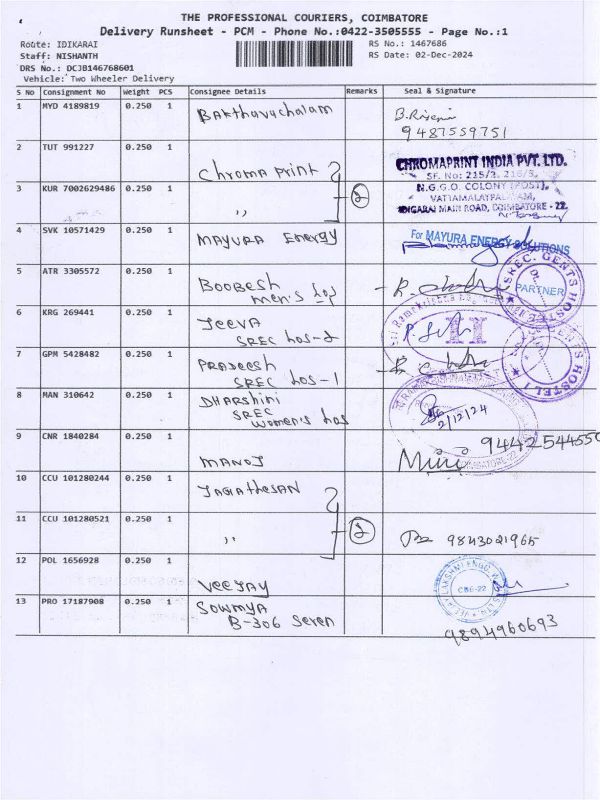 THE PROFESSIONAL COURIERS, COIMBATORE
Delivery Runsheet - PCM - Phone No.:0422-3505555 - Page No.:1
Route: IDIKARAI
RS No.: 1467686
Staff: NISHANTH
RS Date: 02-Dec-2024
DRS No.: DCJB146768601
Vehicle: Two Wheeler Delivery
S No Consignment No Weight PCS Consignee Details Remarks Seal & Signature
1 MYD 4189819 0.250 1 Bakthavachalam
9487559751
2 TUT 991227 0.250 1 Chroma print
CHROMAPRINT INDIA PVT. LTD.
SF. No: 215/2, 216/5,
N.G.G.O. COLONY (POST),
VATTAMALAIPALAYAM,
IDIGARAI MAIN ROAD, COIMBATORE - 22.
3 KUR 7002629486 0.250 1 ,, 2
4 SVK 10571429 0.250 1 MAYURA Energy
For MAYURA ENERGY SOLUTIONS
PARTNER
5 ATR 3305572 0.250 1 BOOBESH
men's hos
SREC. GENTS HOSTEL
6 KRG 269441 0.250 1 JEEVA
SREC hos-2
II
7 GPM 5428482 0.250 1 PRADEESH
SREC hos-1
GENTS HOSTEL I
8 MAN 310642 0.250 1 DHARSHINI
SREC
women's hos
2/12/24
9 CNR 1840284 0.250 1 MANOJ
9442544550
COIMBATORE-22
10 CCU 101280244 0.250 1 JAGATHESAN
11 CCU 101280521 0.250 1 ,, 2
9843021965
12 POL 1656928 0.250 1 VEEJAY
CBE-22
13 PRO 17187908 0.250 1 SOWMYA
B-306 Seven
9894960693